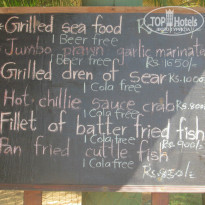 TOP Hotels
Grilled sea food
1 Beer free
Jumbo prawn garlic marinate
Beer free Rs. 1650/-
Grilled dren ot sear Rs. 1000
1 Cola free
Hot chillie sauce crab Rs. 800
1 Cola free
Fillet of batter fried fish
1 Cola free Rs. 900/-
Pan fried cuttle fish
1 Cola free Rs. 850/-